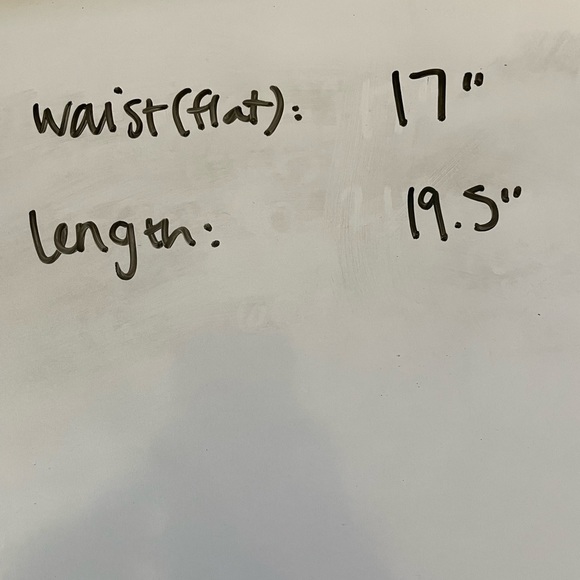 waist(flat): 17"
length: 19.5"